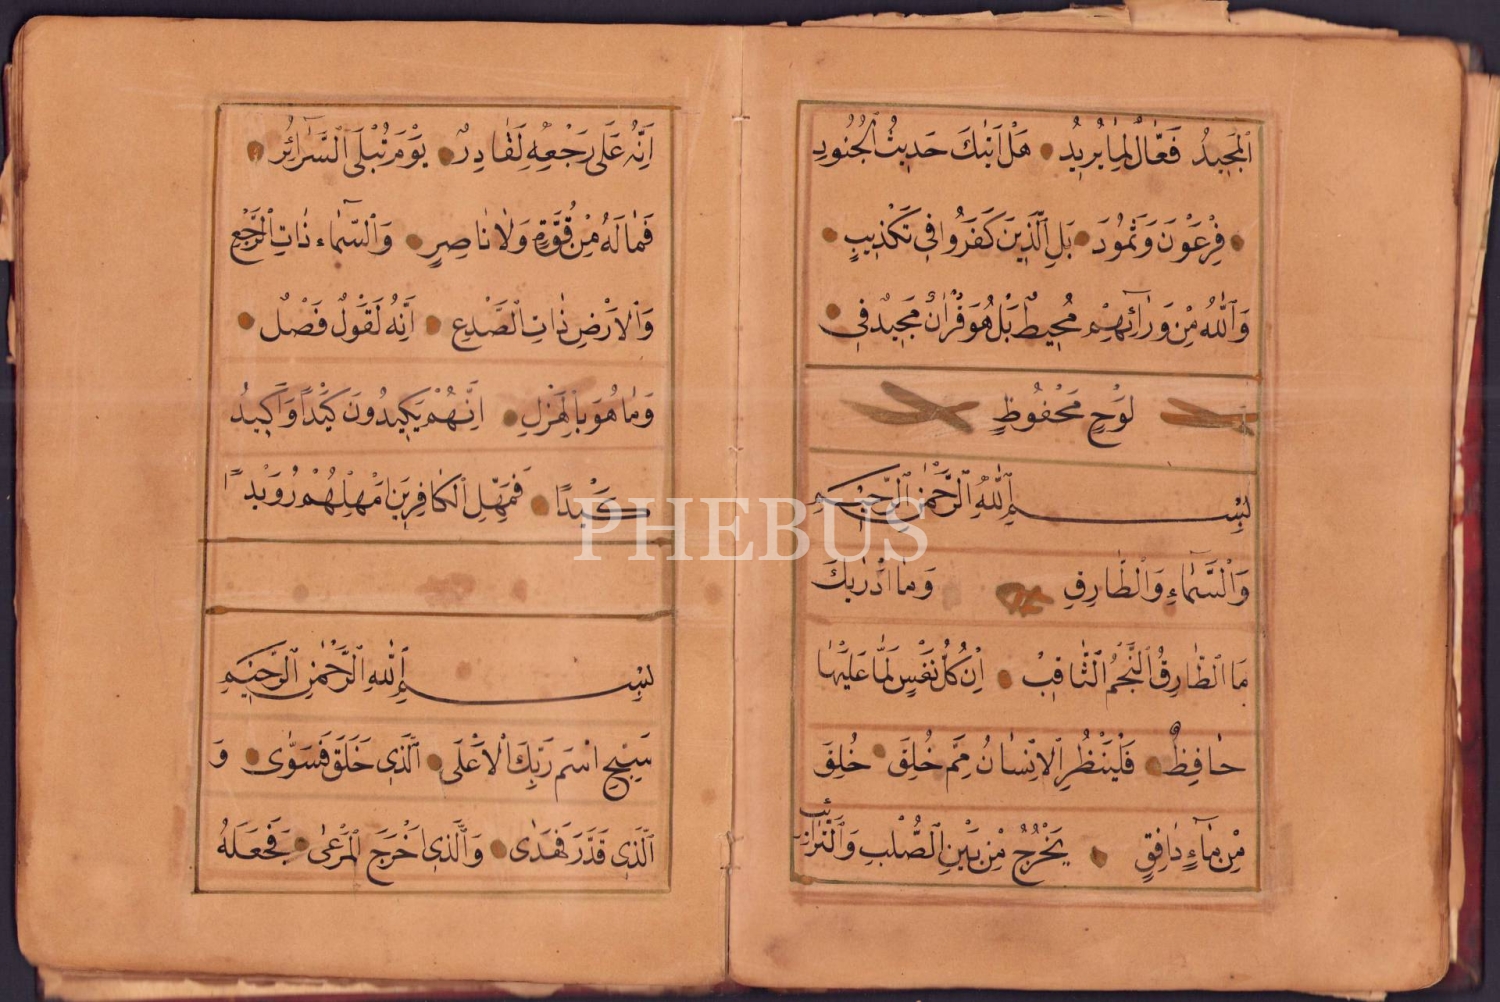 اَلْمَجِيدُ فَعَّالٌ لِمٰا يُرِيدُ هَلْ اَتٰيكَ حَدِيثُ الْجُنُودِ
فِرْعَوْنَ وَثَمُودَ بَلِ الَّذِينَ كَفَرُوا فِى تَكْذِيبٍ
وَاللّٰهُ مِنْ وَرٰآئِهِمْ مُحِيطٌ بَلْ هُوَ قُرْاٰنٌ مَجِيدٌ فِى
لَوْحٍ مَحْفُوظٍ
بِسْمِ اللّٰهِ الرَّحْمٰنِ الرَّحِيمِ
وَالسَّمٰآءِ وَالطّٰارِقِ وَمٰا اَدْرٰيكَ
مَا الطّٰارِقُ النَّجْمُ الثّٰاقِبُ اِنْ كُلُّ نَفْسٍ لَمّٰا عَلَيْهٰا
حٰافِظٌ فَلْيَنْظُرِ الْاِنْسٰانُ مِمَّ خُلِقَ خُلِقَ
مِنْ مٰآءٍ دٰافِقٍ يَخْرُجُ مِنْ بَيْنِ الصُّلْبِ وَالتَّرٰآئِبِ
اِنَّهُ عَلَى رَجْعِهِ لَقٰادِرٌ يَوْمَ تُبْلَى السَّرٰآئِرُ
فَمٰا لَهُ مِنْ قُوَّةٍ وَلٰا نٰاصِرٍ وَالسَّمٰاءِ ذٰاتِ الرَّجْعِ
وَالْاَرْضِ ذٰاتِ الصَّدْعِ اِنَّهُ لَقَوْلٌ فَصْلٌ
وَمٰا هُوَ بِالْهَزْلِ اِنَّهُمْ يَكِيدُونَ كَيْداً وَاَكِيدُ
كَيْدًا فَمَهِّلِ الْكٰافِرِينَ اَمْهِلْهُمْ رُوَيْدًا
بِسْمِ اللّٰهِ الرَّحْمٰنِ الرَّحِيمِ
سَبِّحِ اسْمَ رَبِّكَ الْاَعْلَى اَلَّذِى خَلَقَ فَسَوّٰى وَ
الَّذِى قَدَّرَ فَهَدٰى وَالَّذِى اَخْرَجَ الْمَرْعٰى فَجَعَلَهُ
PHEBUS